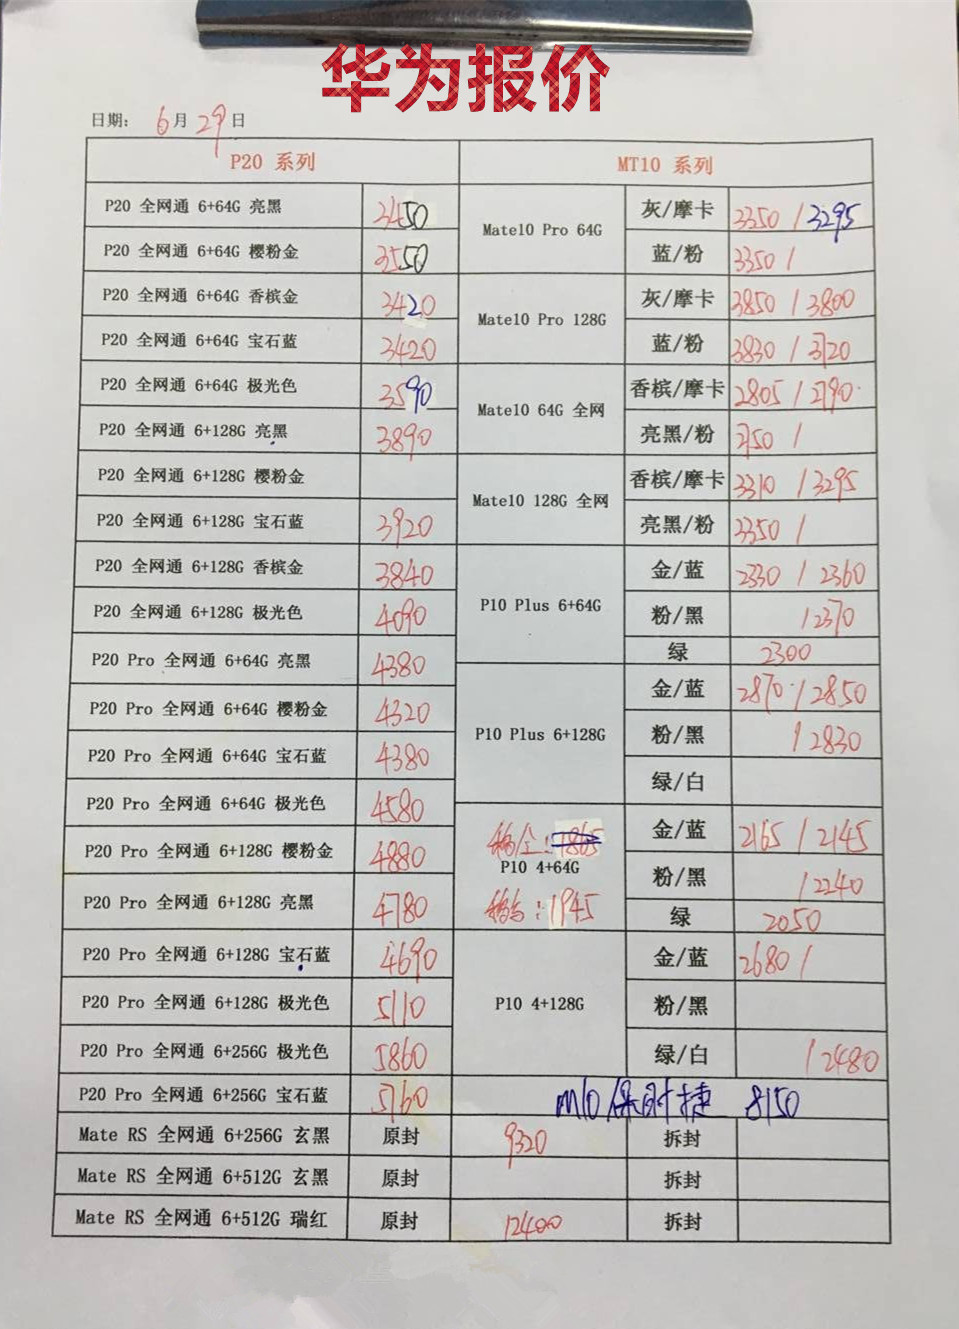 华为报价
日期: 6月29日
P20 系列
P20 全网通 6+64G 亮黑 3450
P20 全网通 6+64G 樱粉金 3550
P20 全网通 6+64G 香槟金 3420
P20 全网通 6+64G 宝石蓝 3420
P20 全网通 6+64G 极光色 3590
P20 全网通 6+128G 亮黑 3890
P20 全网通 6+128G 樱粉金
P20 全网通 6+128G 宝石蓝 3920
P20 全网通 6+128G 香槟金 3840
P20 全网通 6+128G 极光色 4090
P20 Pro 全网通 6+64G 亮黑 4380
P20 Pro 全网通 6+64G 樱粉金 4320
P20 Pro 全网通 6+64G 宝石蓝 4380
P20 Pro 全网通 6+64G 极光色 4580
P20 Pro 全网通 6+128G 樱粉金 4880
P20 Pro 全网通 6+128G 亮黑 4780
P20 Pro 全网通 6+128G 宝石蓝 4690
P20 Pro 全网通 6+128G 极光色 5110
P20 Pro 全网通 6+256G 极光色 5860
P20 Pro 全网通 6+256G 宝石蓝 5760
MT10 系列
Mate10 Pro 64G
灰/摩卡 3350 / 3295
蓝/粉 3350 /
Mate10 Pro 128G
灰/摩卡 3850 / 3800
蓝/粉 3830 / 3720
Mate10 64G 全网
香槟/摩卡 2805 / 2790
亮黑/粉 2750 /
Mate10 128G 全网
香槟/摩卡 3310 / 3295
亮黑/粉 3350 /
P10 Plus 6+64G
金/蓝 2330 / 2360
粉/黑 / 2370
绿 2300
P10 Plus 6+128G
金/蓝 2870 / 2850
粉/黑 / 2830
绿/白
1865
P10 4+64G
: 1945
金/蓝 2165 / 2145
粉/黑 / 2240
绿 2050
P10 4+128G
金/蓝 2680 /
粉/黑
绿/白 / 2480
M10保时捷 8150
Mate RS 全网通 6+256G 玄黑 原封 9320 拆封
Mate RS 全网通 6+512G 玄黑 原封 拆封
Mate RS 全网通 6+512G 瑞红 原封 12400 拆封